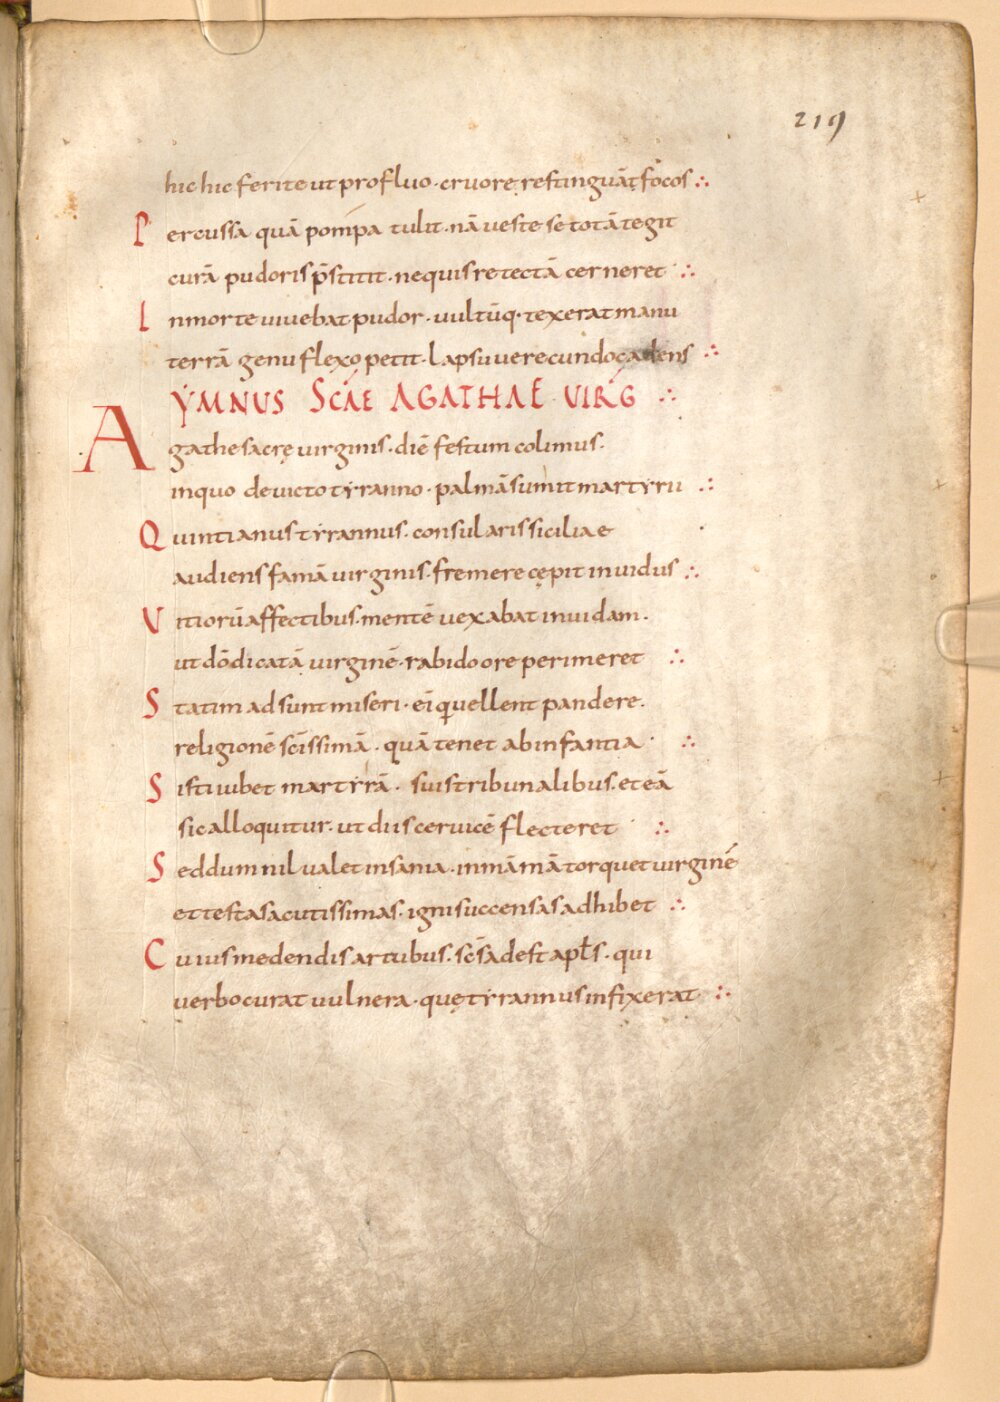 219
hic hic ferite ut profluo · cruore restinguā̄t focos ∴
Percussa quā pompa tulit · nā veste se totā tegit
curā pudoris p̄stitit · nequis retectā cerneret ∴
Inmorte uiuebat pudor · uultūq· texerat manu
terrā genu flexo petit · lapsu uerecundo cadens ∴
YMNUS SC̄AE AGATHAE UIRG ∴
Agathe sacrę uirginis · diē festum colimus ·
inquo deuicto tẏranno · palmā sumit martẏru ∴
Quintianus tẏrannus · consularis siciliae
audiens famā uirginis · fremere cępit inuidus ∴
Vitiorū affectibus · mentē uexabat inuidam ·
ut dōdicatā uirginē · rabido ore perimeret ∴
Statim adsunt miseri · ei quellent pandere ·
religionē sc̄issimā · quā tenet abinfantia · ∴
Sisti iubet martẏrā · suis tribunalibus · et eā
sic alloquitur · ut diis ceruicē flecteret ∴
Sed dum nil ualet insania · inmāmā torquet uirginē
et testas acutissimas · igni succensas adhibet ∴
Cuius medendis artubus · sc̄s adest apłs · qui
uerbo curat uulnera · quę tẏrannus infixerat ∴